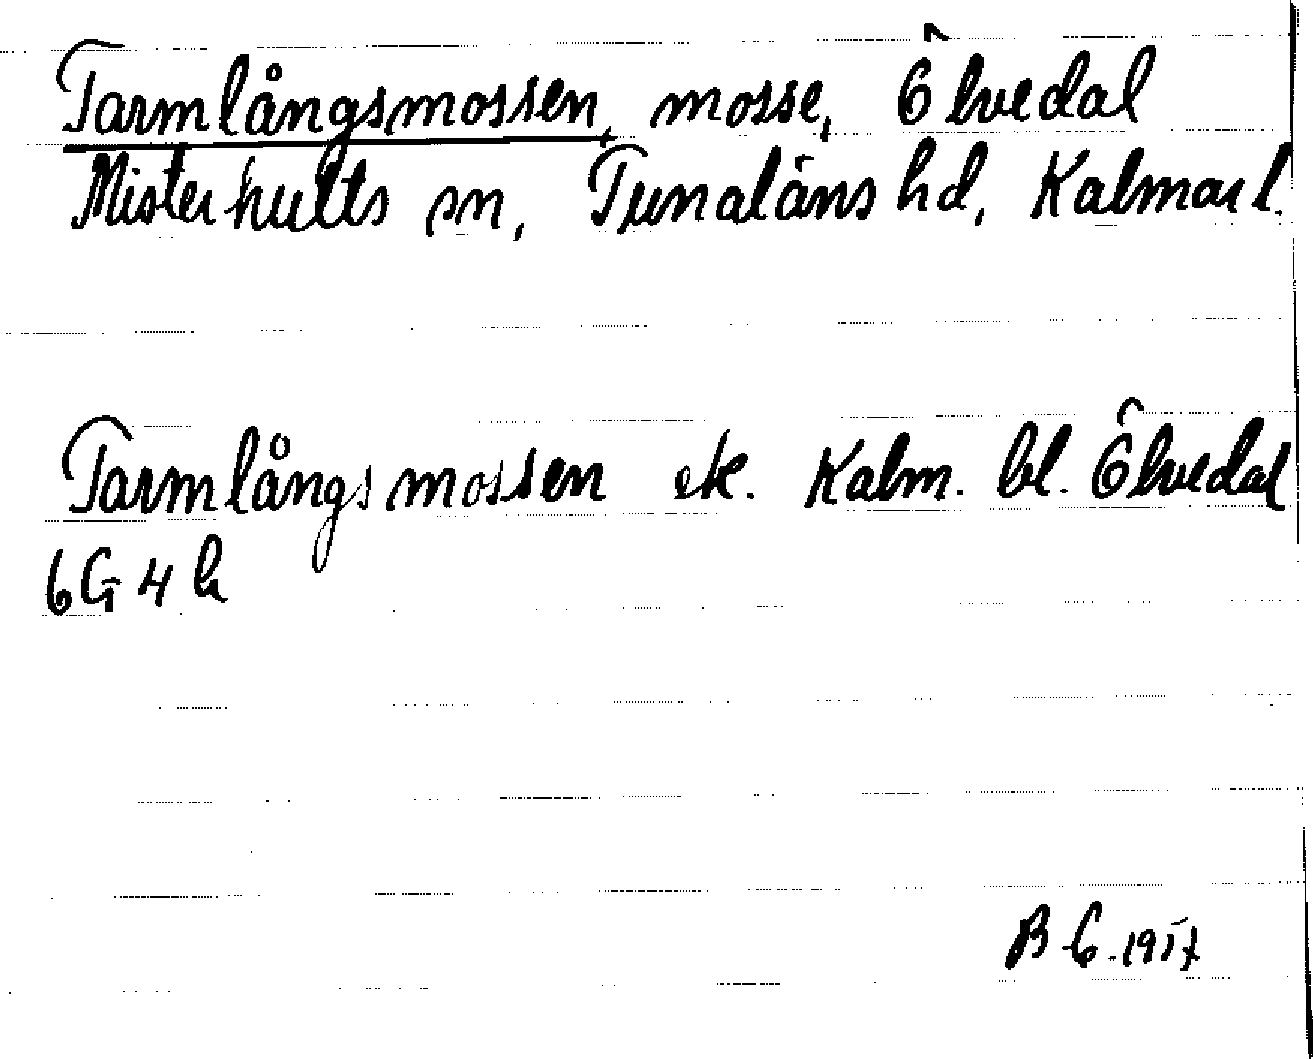 Tarmlångsmossen, mosse, Ölvedal
Misterhults sn, Tunaläns hd, Kalmar l.
Tarmlångsmossen ek. Kalm. bl. Ölvedal
6G 4 h
1957